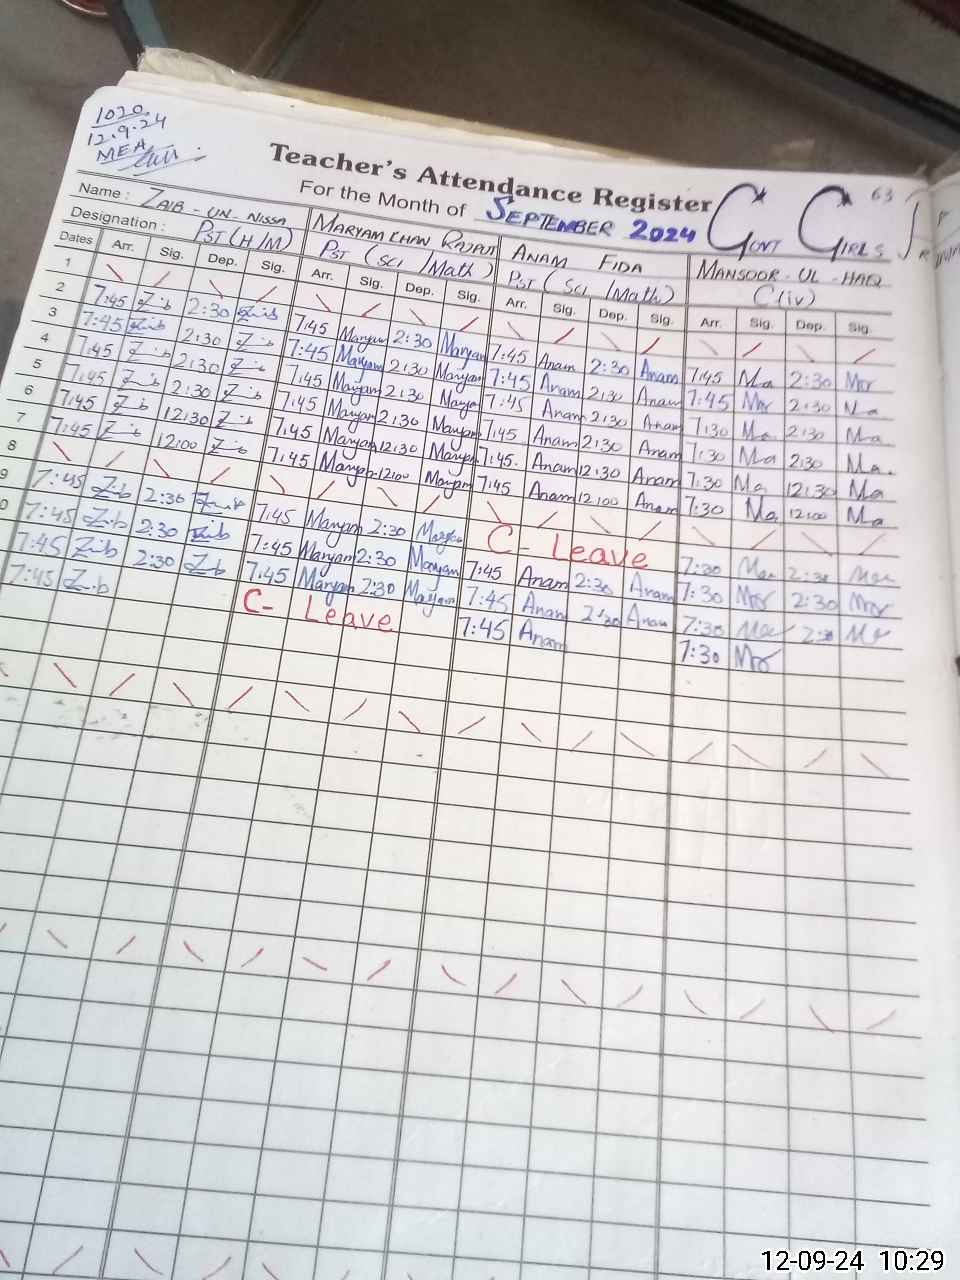 1020
12.9.24
MEA
Teacher's Attendance Register
For the Month of SEPTEMBER 2024
63
GOVT GIRLS
Name: ZAIB-UN-NISSA MARYAM KHAN RAJPUT ANAM FIDA MANSOOR-UL-HAQ
Designation: PST (H/M) PST (SCI/Math) PST (SCI/Math) C(iv)
Dates Arr. Sig. Dep. Sig. Arr. Sig. Dep. Sig. Arr. Sig. Dep. Sig. Arr. Sig. Dep. Sig.
1
2 7:45 Z.b 2:30 Z.b 7:45 Maryam 2:30 Maryam 7:45 Anam 2:30 Anam 7:45 Ma 2:30
3 7:45 Z.b 2:30 Z.b 7:45 Maryam 2:30 Maryam 7:45 Anam 2:30 Anam 7:45 2:30 Ma
4 7:45 Z.b 2:30 Z.b 7:45 Maryam 2:30 Maryam 7:45 Anam 2:30 Anam 7:30 Ma 2:30 Ma
5 7:45 Z.b 2:30 Z.b 7:45 Maryam 2:30 Maryam 7:45 Anam 2:30 Anam 7:30 Ma 2:30 Ma.
6 7:45 Z.b 12:30 Z.b 7:45 Maryam 12:30 Maryam 7:45. Anam 12:30 Anam 7:30 Ma 12:30 Ma
7 7:45 Z.b 12:00 Z.b 7:45 Maryam 12:00 Maryam 7:45 Anam 12:00 Anam 7:30 Ma 12:00 Ma
8
9 7:45 Z.b 2:30 7:45 Maryam 2:30 Maryam C- Leave 7:30 2:30
0 7:45 Z.b 2:30 Z.b 7:45 Maryam 2:30 Maryam 7:45 Anam 2:30 Anam 7:30 2:30
7:45 Z.b 2:30 Z.b 7:45 Maryam 2:30 Maryam 7:45 Anam 2:30 Anam 7:30 2:30
7:45 Z.b C- Leave 7:45 Anam 7:30
12-09-24 10:29